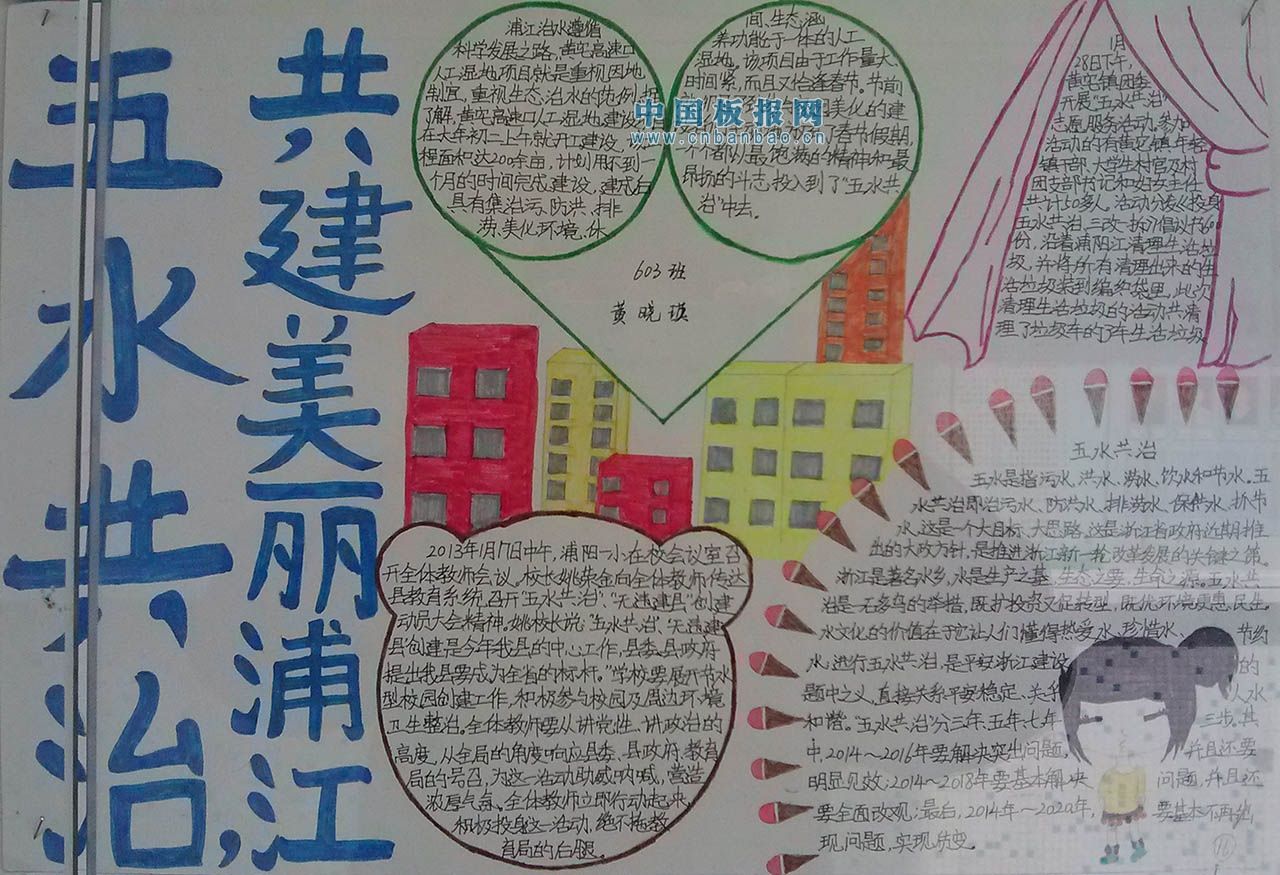 五水共治,
共建美丽浦江
浦江治水遵循
科学发展之路,黄宅高速口
人工湿地项目就是重视因地
制宜,重视生态治水的范例,据
了解,黄宅高速口人工湿地建设
在大年初二上午就开工建设,
程面积达200余亩,计划用不到一
个月的时间完成建设,建成后
具有集治污、防洪、排
涝、美化环境、休
间、生态涵
养功能于一体的人工
湿地。该项目由于工作量大
时间紧,而且又恰逢春节。节前
美化的建
了春节假期,
个个都以最饱满的精神和最
昂扬的斗志投入到了"五水共
治"中去。
中国板报网
www.cnbanbao.cn
603班
黄晓瑛
1月
28日下午,
黄宅镇团委
开展"五水共治"
志愿服务活动,参加
活动的有黄宅镇年轻
镇干部、大学生村官及村
团支部书记和妇女主任
共计50多人,活动分发《投身
五水共治 三改一拆》倡议书60
份,沿着浦阳江清理生活垃
圾,并将所有清理出来的生
活垃圾装到编织袋里,此次
清理生活垃圾的活动共清
理了垃圾车的了车生活垃圾
2013年1月7日中午,浦阳一小在校会议室召
开全体教师会议。校长姚荣金向全体教师传达
县教育系统召开"五水共治"、"无违建县"创建
动员大会精神,姚校长说:"五水共治"、"无违建
县创建是今年我县的中心工作,县委、县政府
提出我县要成为全省的标杆。"学校要展开节水
型校园创建工作,积极参与校园及周边环境
卫生整治。全体教师要从讲党性、讲政治的
高度,从全局的角度响应县委、县政府、教育
局的号召,为这一活动助威呐喊,营造
浓厚气氛。全体教师立即行动起来,
积极投身这一活动,绝不拖教
育局的后腿。
五水共治
五水是指污水、洪水、涝水、饮水和节水,五
水共治即治污水、防洪水、排涝水、保供水、抓节
水,这是一个大目标、大思路,这是浙江省政府近期推
出的大政方针,是推进浙江新一轮改革发展的关键之策。
浙江是著名水乡,水是生产之基,生态之要,生命之源。五水共
治是一石多鸟的举措,既扩投资又促转型,既优环境更惠民生。
水文化的价值在于它让人们懂得热爱水、珍惜水、节约
水,进行五水共治,是平安浙江建设的
题中之义,直接关系平安稳定、关乎人水
和谐。"五水共治"分三年、五年、七年三步。其
中,2014～2016年要解决突出问题,并且还要
明显见效;2014～2018年要基本解决问题,并且还
要全面改观;最后,2014年～2020年,要基本不再出
现问题,实现质变。
16